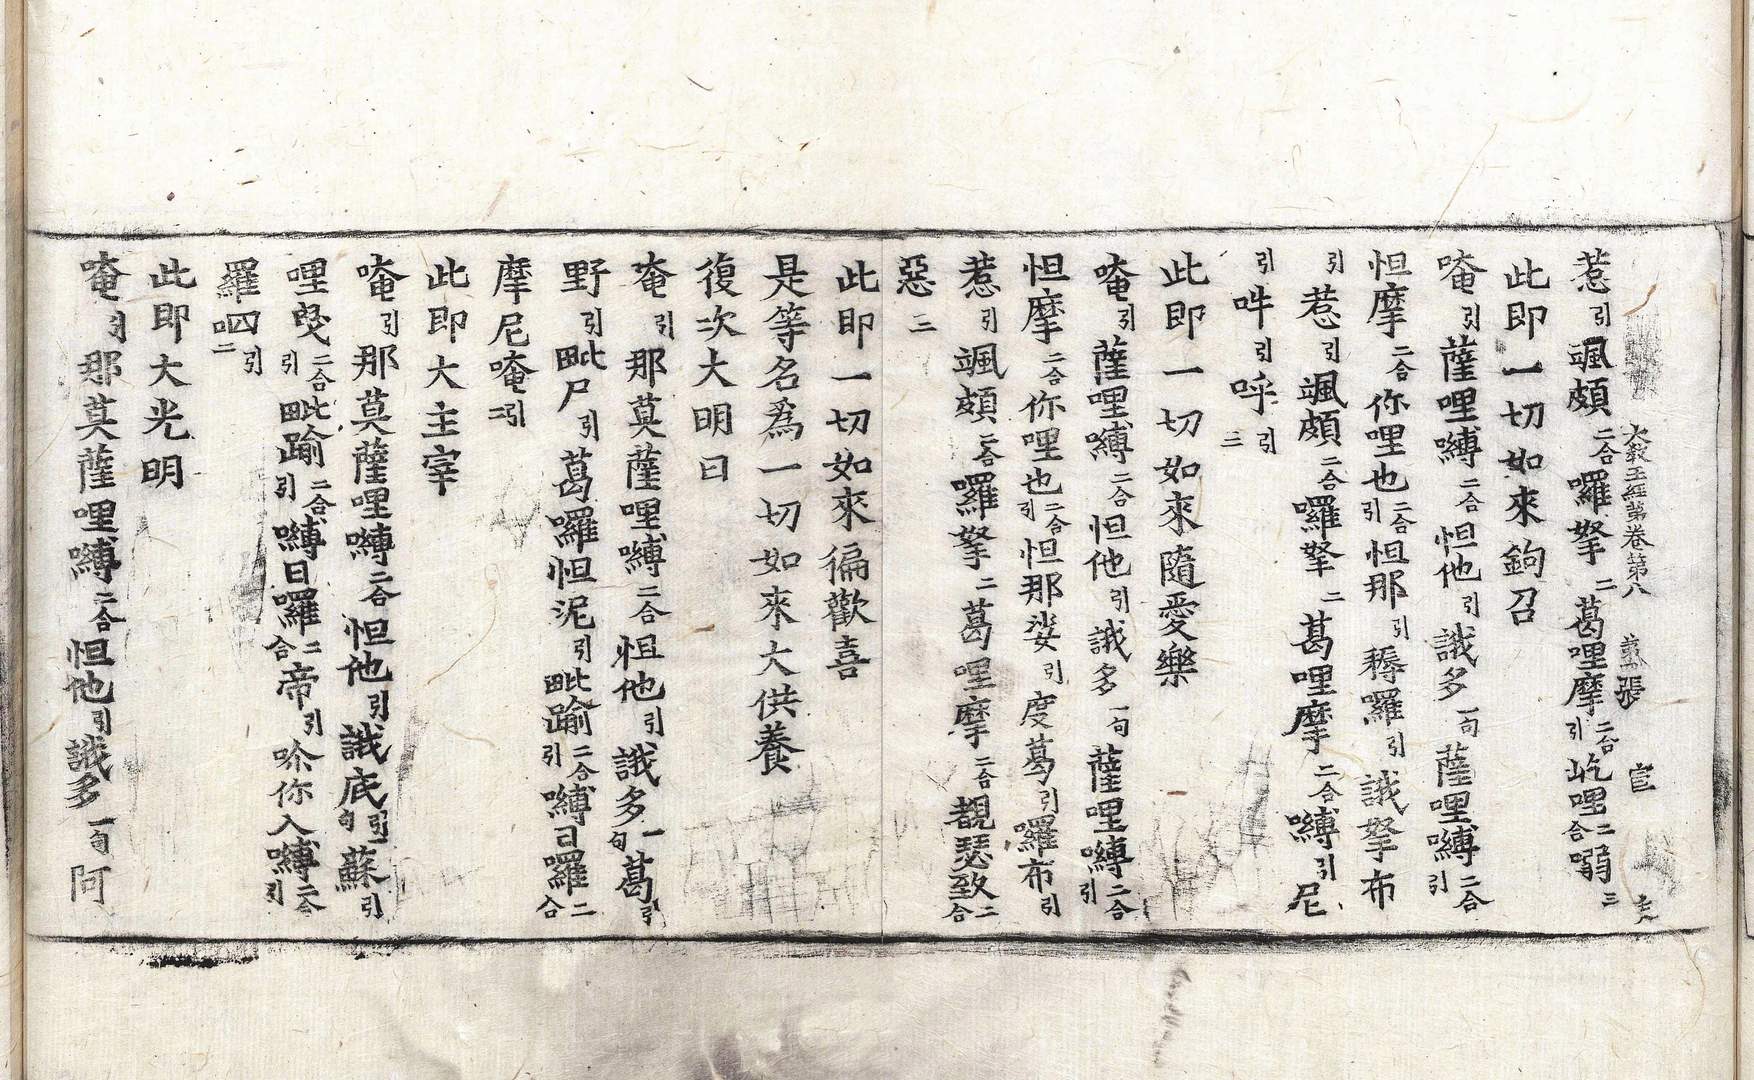 大教王經第卷第八 張 宣
惹引颯頗二合囉拏二葛哩摩二合引屹哩二合嚩三
此即一切如來鉤召
唵引薩哩嚩二合怛他引誐多一句薩哩嚩二合引
怛摩二合你哩也二合引怛那引穆囉引誐拏布
引惹引颯頗二合囉拏二葛哩摩二合嚩引尼
引吽引呼引三
此即一切如來隨愛樂
唵引薩哩嚩二合怛他引誐多一句薩哩嚩二合引
怛摩二合你哩也二合引怛那娑引度葛引囉布引
惹引颯頗二合囉拏二葛哩摩二合覩瑟致二合
惡三
此即一切如來徧歡喜
是等名爲一切如來大供養
復次大明曰
唵引那莫薩哩嚩二合怛他引誐多一句葛引
野引毗尸引葛囉怛泥引毗踰二合引嚩日囉二合
摩尼唵引二
此即大主宰
唵引那莫薩哩嚩二合怛他引誐底引句蘇引
哩曳二合引毗踰二合引嚩日囉二合帝引吤你入嚩二合引
羅呬引二
此即大光明
唵引那莫薩哩嚩二合怛他引誐多一句阿